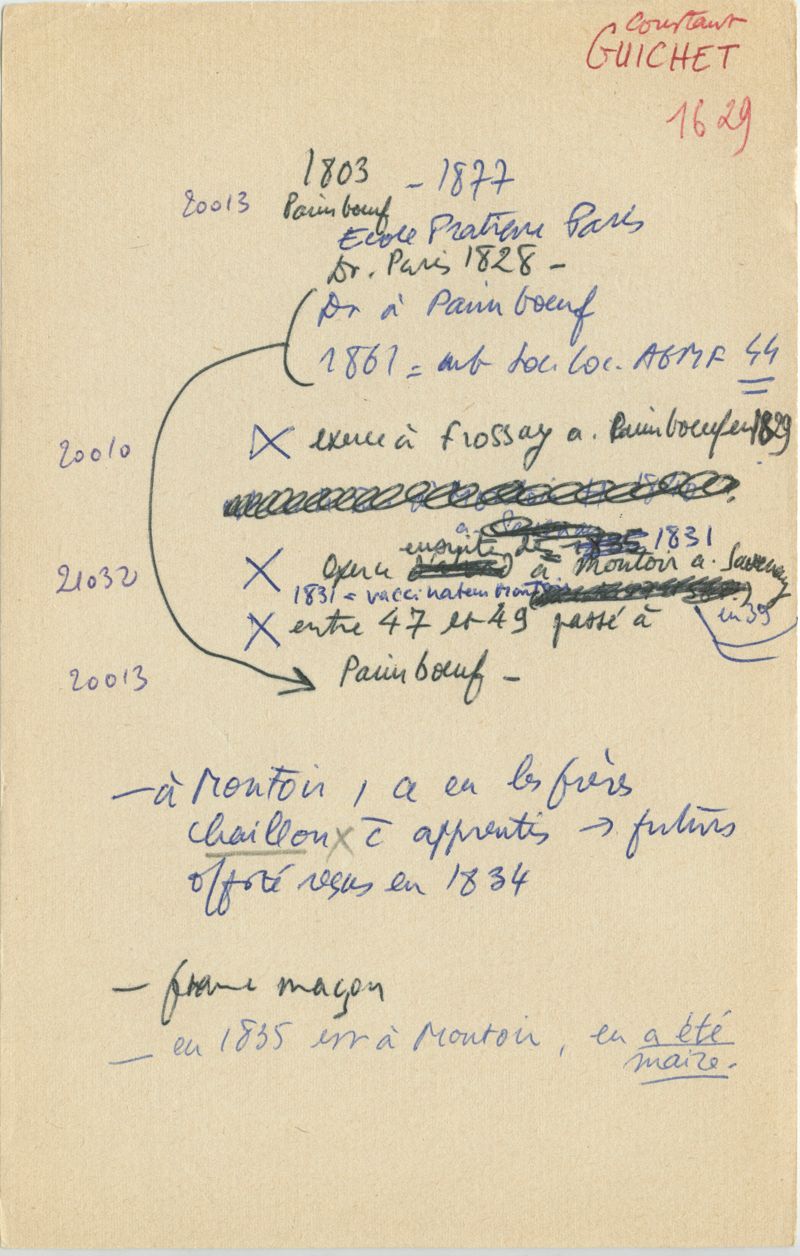 Constant
GUICHET
1629
1803 - 1877
20013 Paimboeuf
Ecole Pratique Paris
Dr. Paris 1828 -
Dr à Paimboeuf
1861 = mb Soc. Loc. AGMF 44
20010 X exerce à Frossay a. Paimboeuf en 1829
a.
ensuite de 1835 1831
21032 X Exerce à Montoir a. Savenay
1831 = vaccinateur Montoir
en 39
X entre 47 et 49 passé à
20013 Paimboeuf -
- à Montoir, a eu les frères
Chaillon X c̄ apprentis → futurs
off. reçus en 1834
- franc maçon
- en 1835 est à Montoir, en a été
maire.